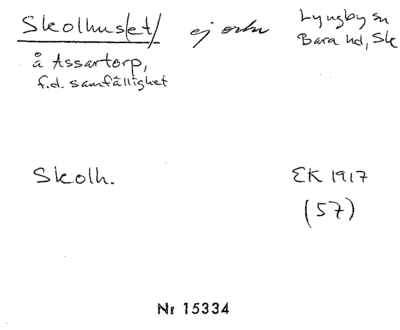 Skolhus/et/ ej ortn Lyngby sn
å Assartorp, Bara hd, Sk
f.d. samfällighet
Skolh. EK 1917
(57)
Nr 15334